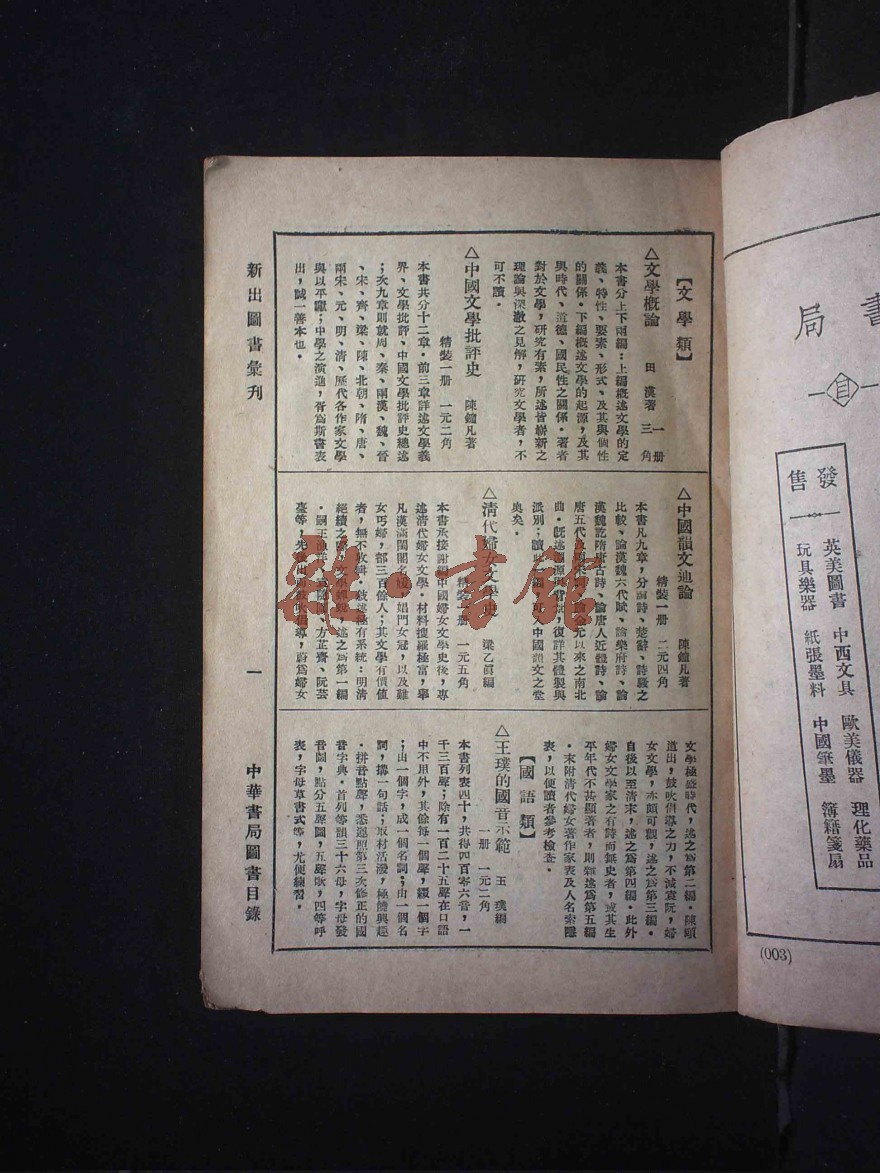 新出圖書彙刊
【文學類】
△文學概論 田漢著 一册 三角
本書分上下兩編：上編概述文學的定
義、特性、要素、形式、及其與個性
的關係。下編概述文學的起源，及其
與時代、道德、國民性之關係。著者
對於文學，研究有素，所述皆嶄新之
理論與深澈之見解，研究文學者，不
可不讀。
△中國文學批評史 陳鐘凡著
精裝一册 一元二角
本書共分十二章。前三章詳述文學義
界、文學批評、中國文學批評史總述
；次九章則就周、秦、兩漢、魏、晉
、宋、齊、梁、陳、北朝、隋、唐、
兩宋、元、明、清、歷代各作家文學
與以平議；中學之演進，胥爲斯書表
出，誠一善本也。
△中國韻文通論 陳鐘凡著
精裝一册 二元四角
本書凡九章，分論詩、楚辭、詩騷之
比較、論漢魏六代賦、論樂府詩、論
漢魏訖隋唐古詩、論唐人近體詩、論
唐五代及兩宋詞、論金元以來之南北
曲。既述淵源與背景，復詳其體製與
派別；讀此一編，可入中國韻文之堂
奥矣。
△清代婦女文學史 梁乙眞編
精裝一册 一元五角
本書承接謝編中國婦女文學史後，專
述清代婦女文學。材料搜羅極富，舉
凡漢滿閨閣名媛，娼門女冠，以及難
女丐婦，都三百餘人；其文學有價値
者，無不收輯。敍述極有系統：明清
絕續之際，文學蟬蛻，述之爲第一編
臺等，先後出而鼓吹倡導，蔚爲婦女
文學極盛時代，述之爲第二編。陳頤
道出，鼓吹倡導之力，不減袁阮，婦
女文學，亦頗可觀，述之爲第三編。
自後以至清末，述之爲第四編。此外
婦女文學家之有詩而無史者，或其生
平年代不甚顯著者，則雜述爲第五編
。末附清代婦女著作家表及人名索隱
表，以便讀者參考檢查。
【國語類】
△王璞的國音示範 王璞編
一册 一元二角
本書列表四十，共得四百零六音，一
千三百聲；除有一百二十五聲在口語
中不用外，其餘每一個聲，綴一個字
；由一個字，成一個名詞；由一個名
詞，搆一句話；取材活潑，極饒興趣
。拼音點聲，悉遵照第三次修正的國
音字典。首列等韻三十六母，字母發
音圖，點分五聲圖，五聲歌，四等呼
表，字母草書式等，尤便練習。
一
中華書局圖書目錄
書局
目
發售
英美圖書 中西文具 歐美儀器 理化藥品
玩具樂器 紙張墨料 中國筆墨 簿籍箋扇
(003)
雅·書館